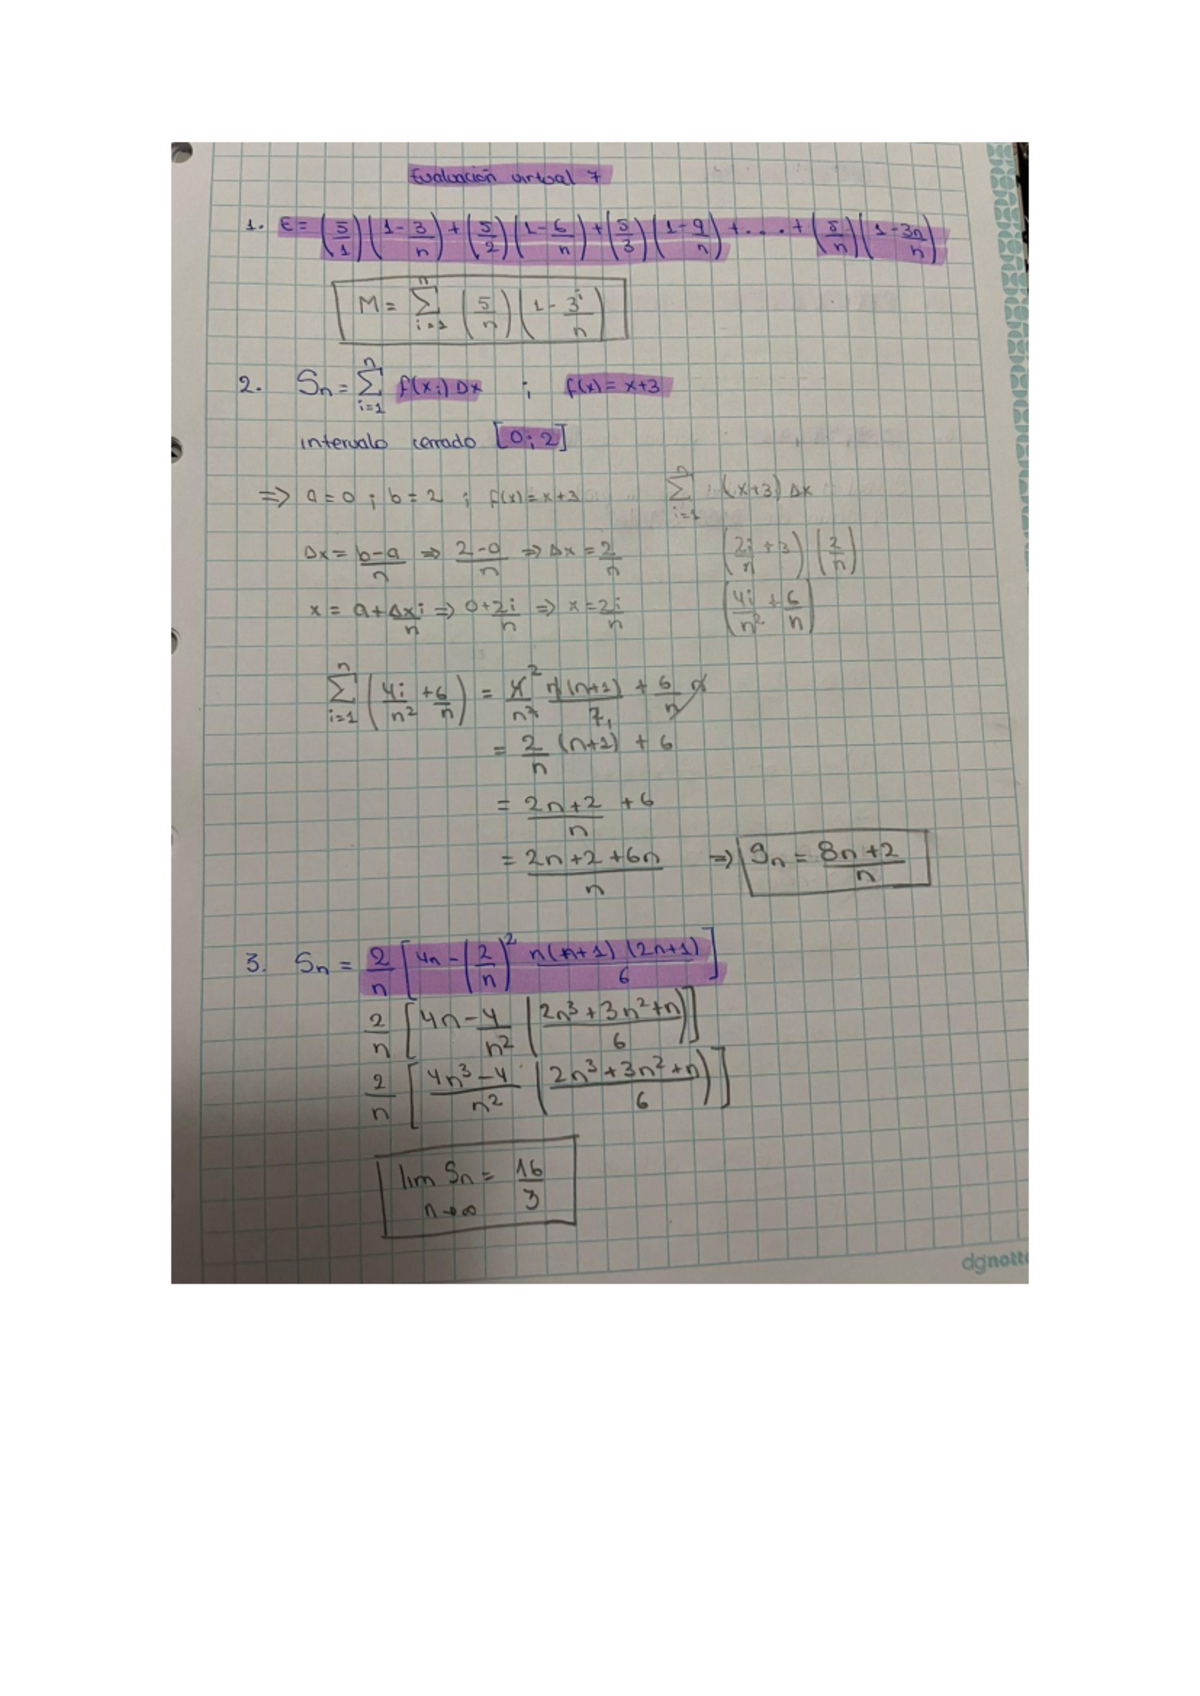 Evaluación virtual 7
1. E = (5/1)(1-3/n) + (5/2)(1-6/n) + (5/3)(1-9/n) + .... + (5/n)(1-3n/n)
M = n Σ i=1 (5/n)(1-3i/n)
2. Sn = n Σ i=1 f(xi) Δx ; f(x) = x+3
intervalo cerrado [0;2]
=> a=0 ; b=2 ; f(x)=x+3 n Σ i=1 (x+3) Δx
Δx = b-a/n => 2-0/n => Δx = 2/n (2i/n + 3)(2/n)
x = a+Δxi/n => 0+2i/n => x = 2i/n (4i/n² + 6/n)
n Σ i=1 (4i/n² + 6/n) = 4/n² n(n+1)/2 + 6/n n
= 2/n (n+1) + 6
= 2n+2/n + 6
= 2n+2+6n/n => Sn = 8n+2/n
3. Sn = 2/n [4n - (2/n)² n(n+1)(2n+1)/6]
2/n [4n - 4/n² (2n³+3n²+n/6)]
2/n [4n³-4/n² (2n³+3n²+n/6)]
lim n→∞ Sn = 16/3
dgnotte